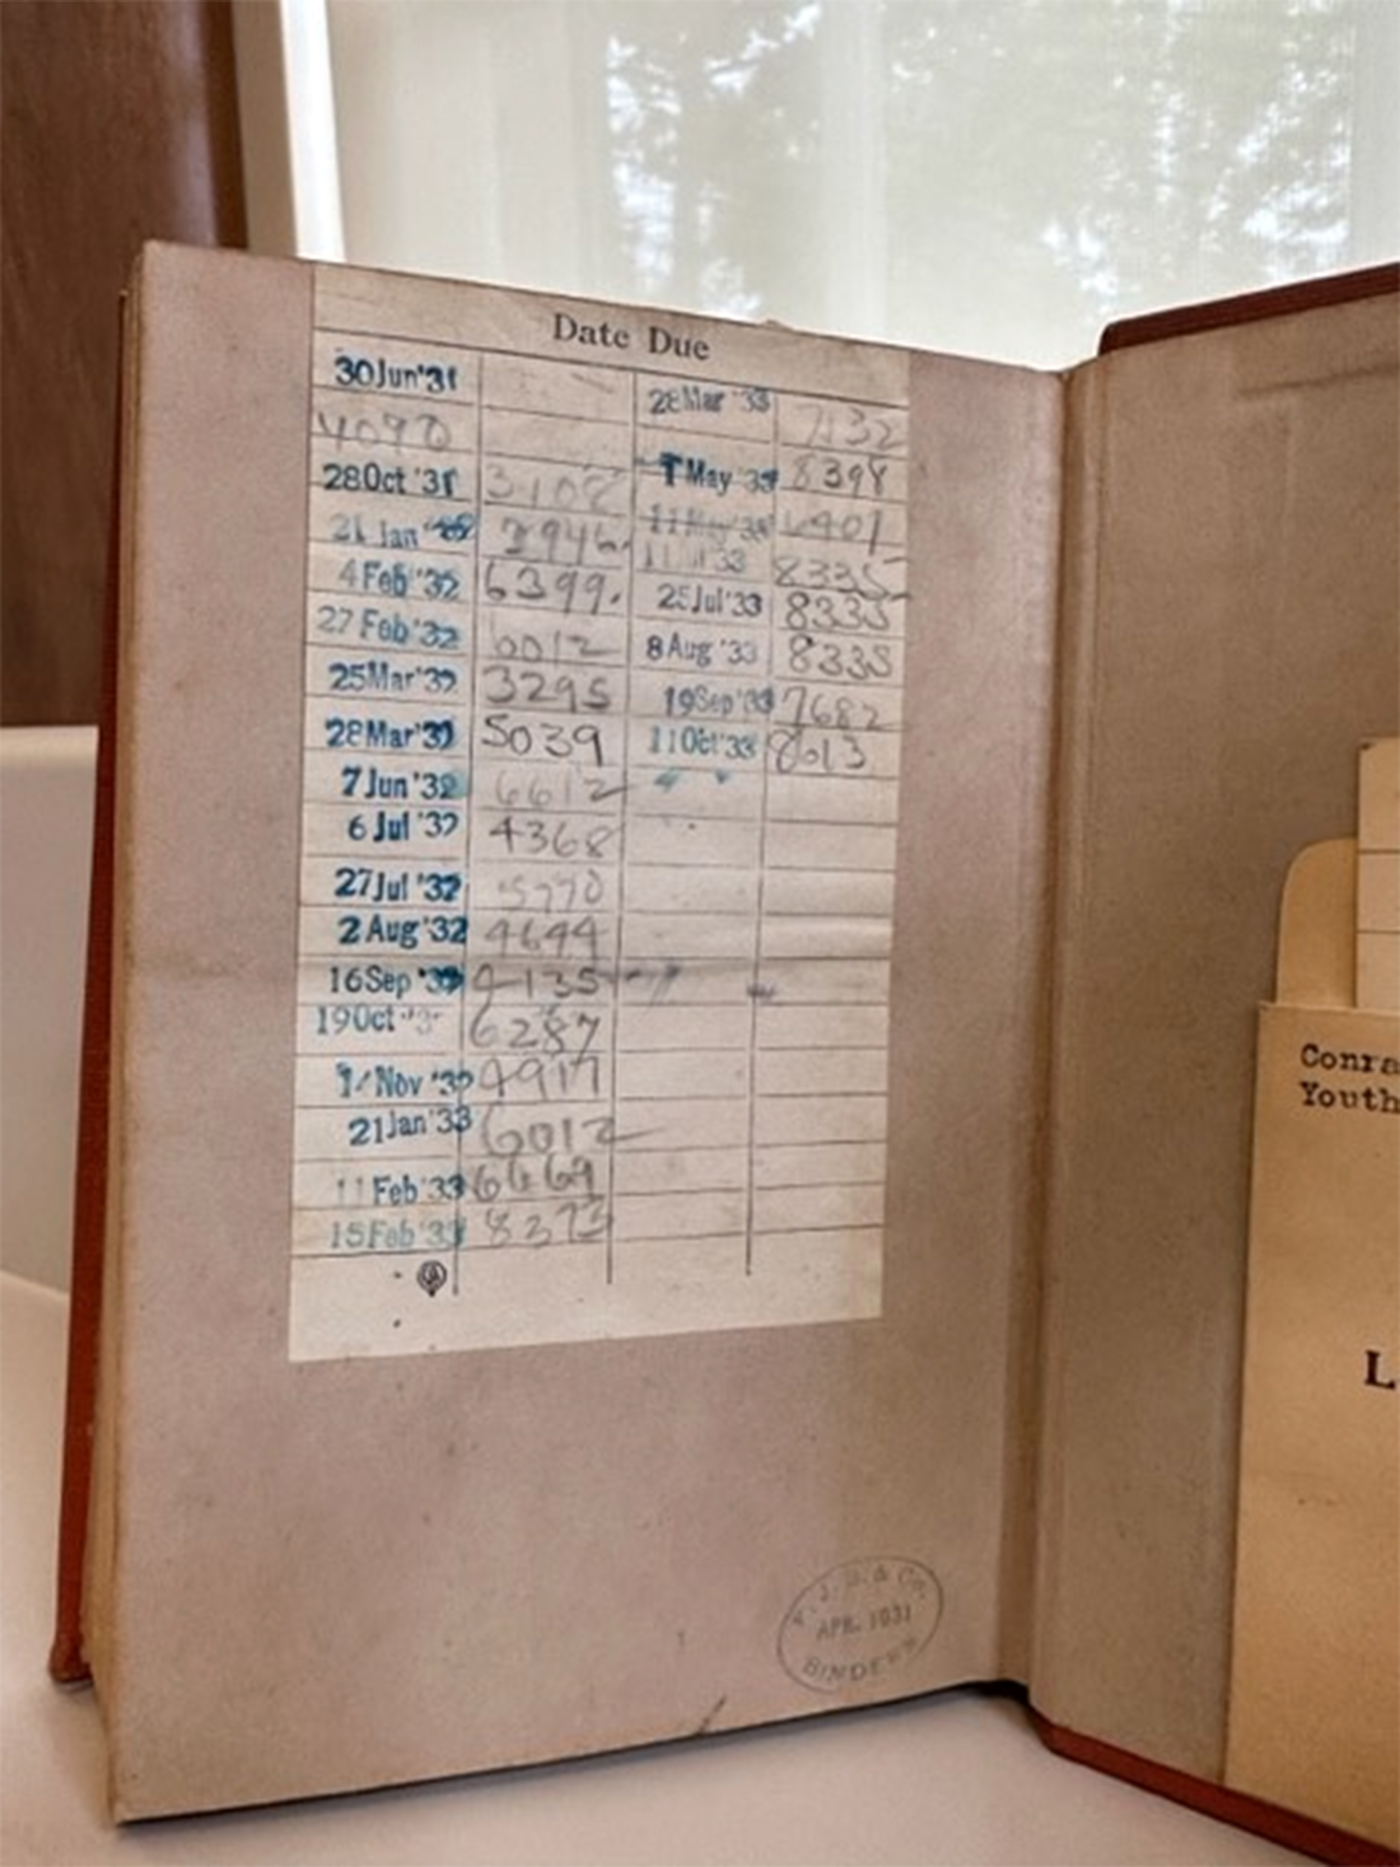 Date Due
30Jun'31
4090
28Oct '31 3108
21 Jan 3946.
4Feb'32 6399.
27 Feb'32 6012
25Mar'32 3295
28Mar'32 5039
7Jun'32 6612
6Jul'32 4368
27Jul'32 5770
2Aug'32 4644
16Sep 4135
19Oct 6287
Nov '32 4917
21Jan'33 6012
11Feb'33 6469
15Feb'33 8375
28Mar '33 7132
1May '33 8398
11May'33
11 '33 8335
25Jul'33 8335
8Aug'33 8335
19Sep'33 7682
11Oct'33 8613
& Co.
APR. 1931
BINDERS
Conra
Youth
L